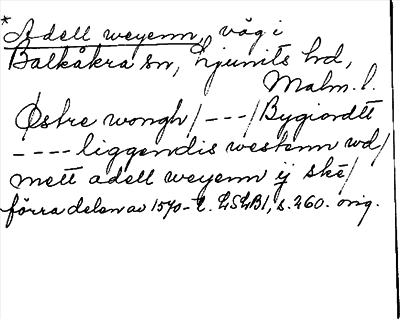 *
Adell weyenn, väg i
Balkåkra sn, Ljunits hd,
Malm. l.
Østre wongh/ - - - /Bygiordtt
- - - - liggendis westenn wd/
mett adell weyenn ij skē/
förra delen av 1570-t. LSLB1, s. 260. orig.